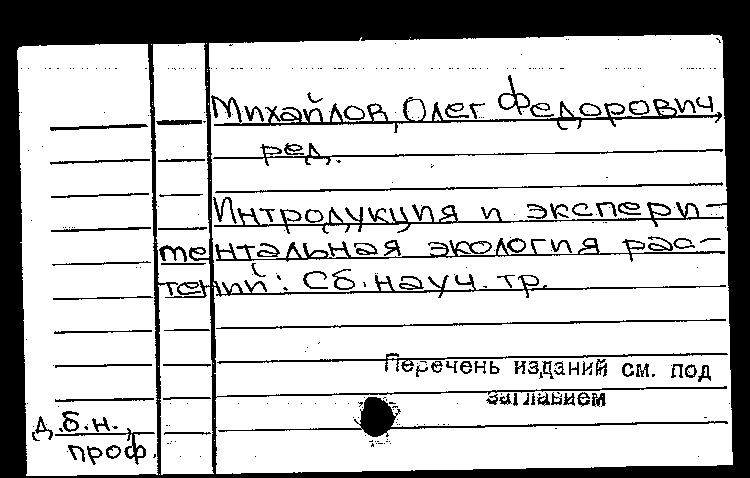 Михайлов, Олег Федорович,
ред.
Интродукция и экспери-
ментальная экология рас-
тений: Сб. науч. тр.
Перечень изданий см. под
заглавием
д.б.н.,
проф.